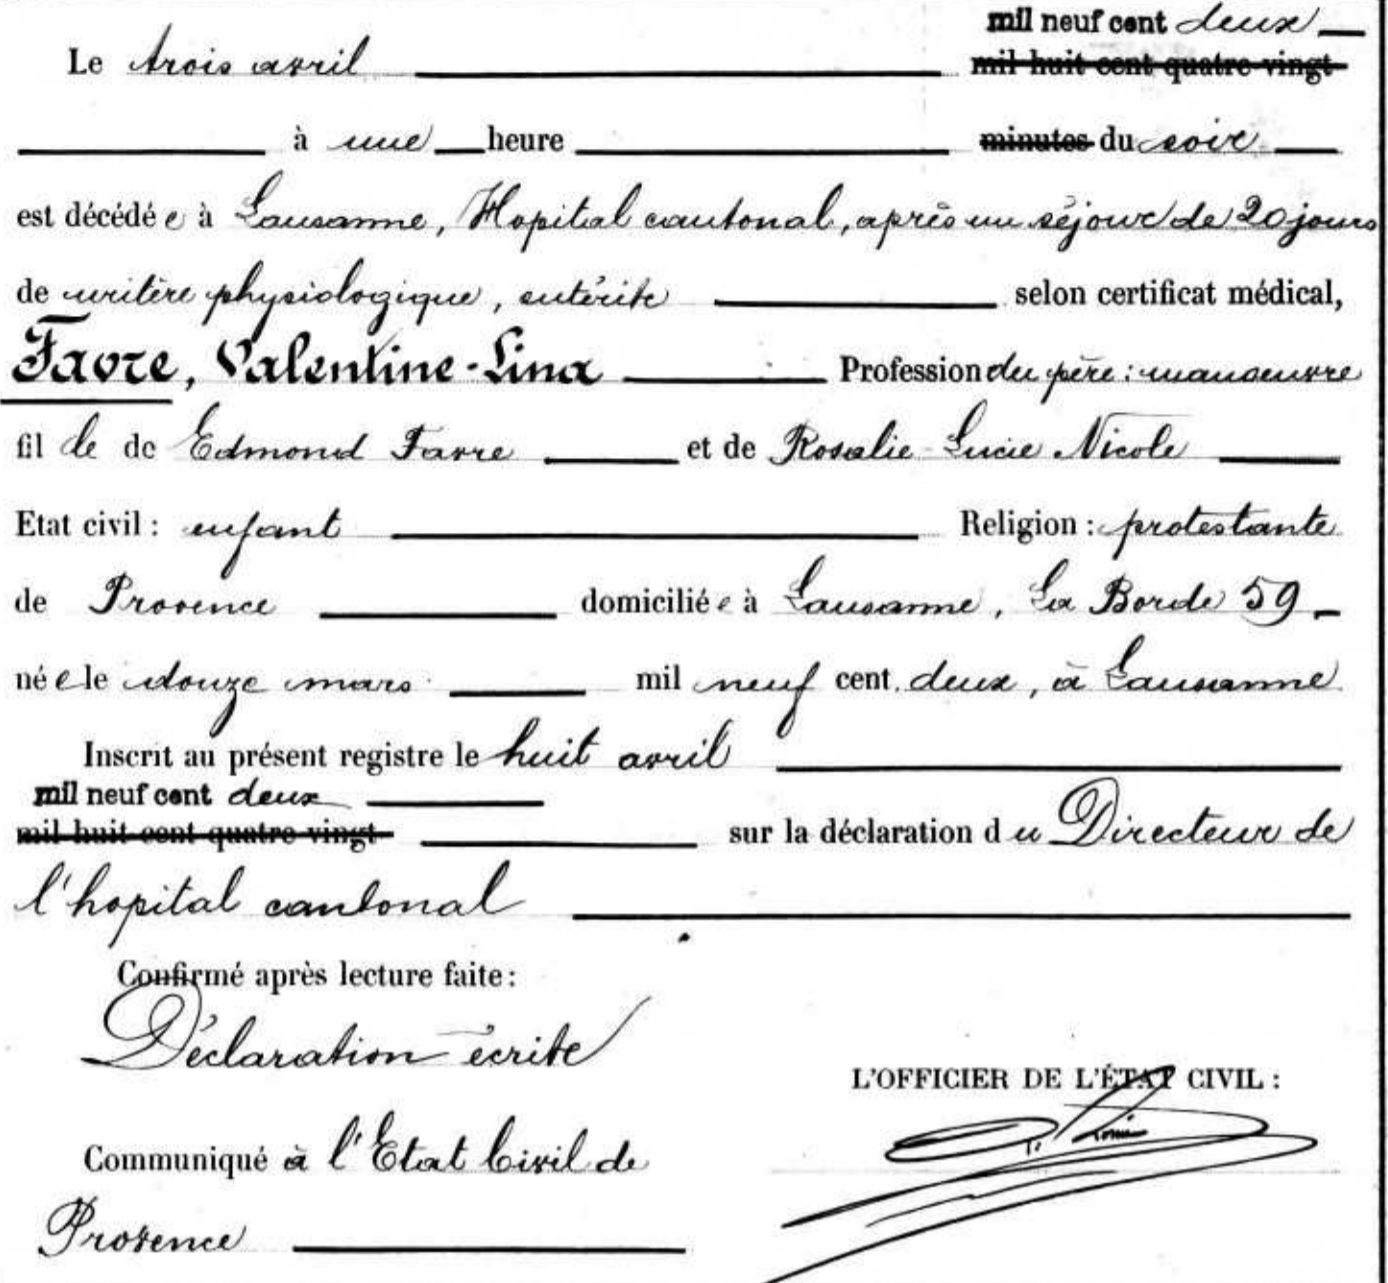 mil neuf cent deux
Le trois avril mil huit cent quatre-vingt
à une heure minutes du soir
est décédée à Lausanne, Hopital cantonal, après un séjour de 20 jours
de ictère physiologique, entérite selon certificat médical,
Favre, Valentine-Lina Profession du père: manoeuvre
fille de Edmond Favre et de Rosalie-Lucie Nicole
Etat civil: enfant Religion: protestante
de Provence domiciliée à Lausanne, La Borde 59
née le douze mars mil neuf cent deux, à Lausanne
Inscrit au présent registre le huit avril
mil neuf cent deux
mil huit cent quatre-vingt sur la déclaration du Directeur de
l'hopital cantonal
Confirmé après lecture faite:
Déclaration écrite
L'OFFICIER DE L'ÉTAT CIVIL:
Communiqué à l'Etat Civil de
Provence